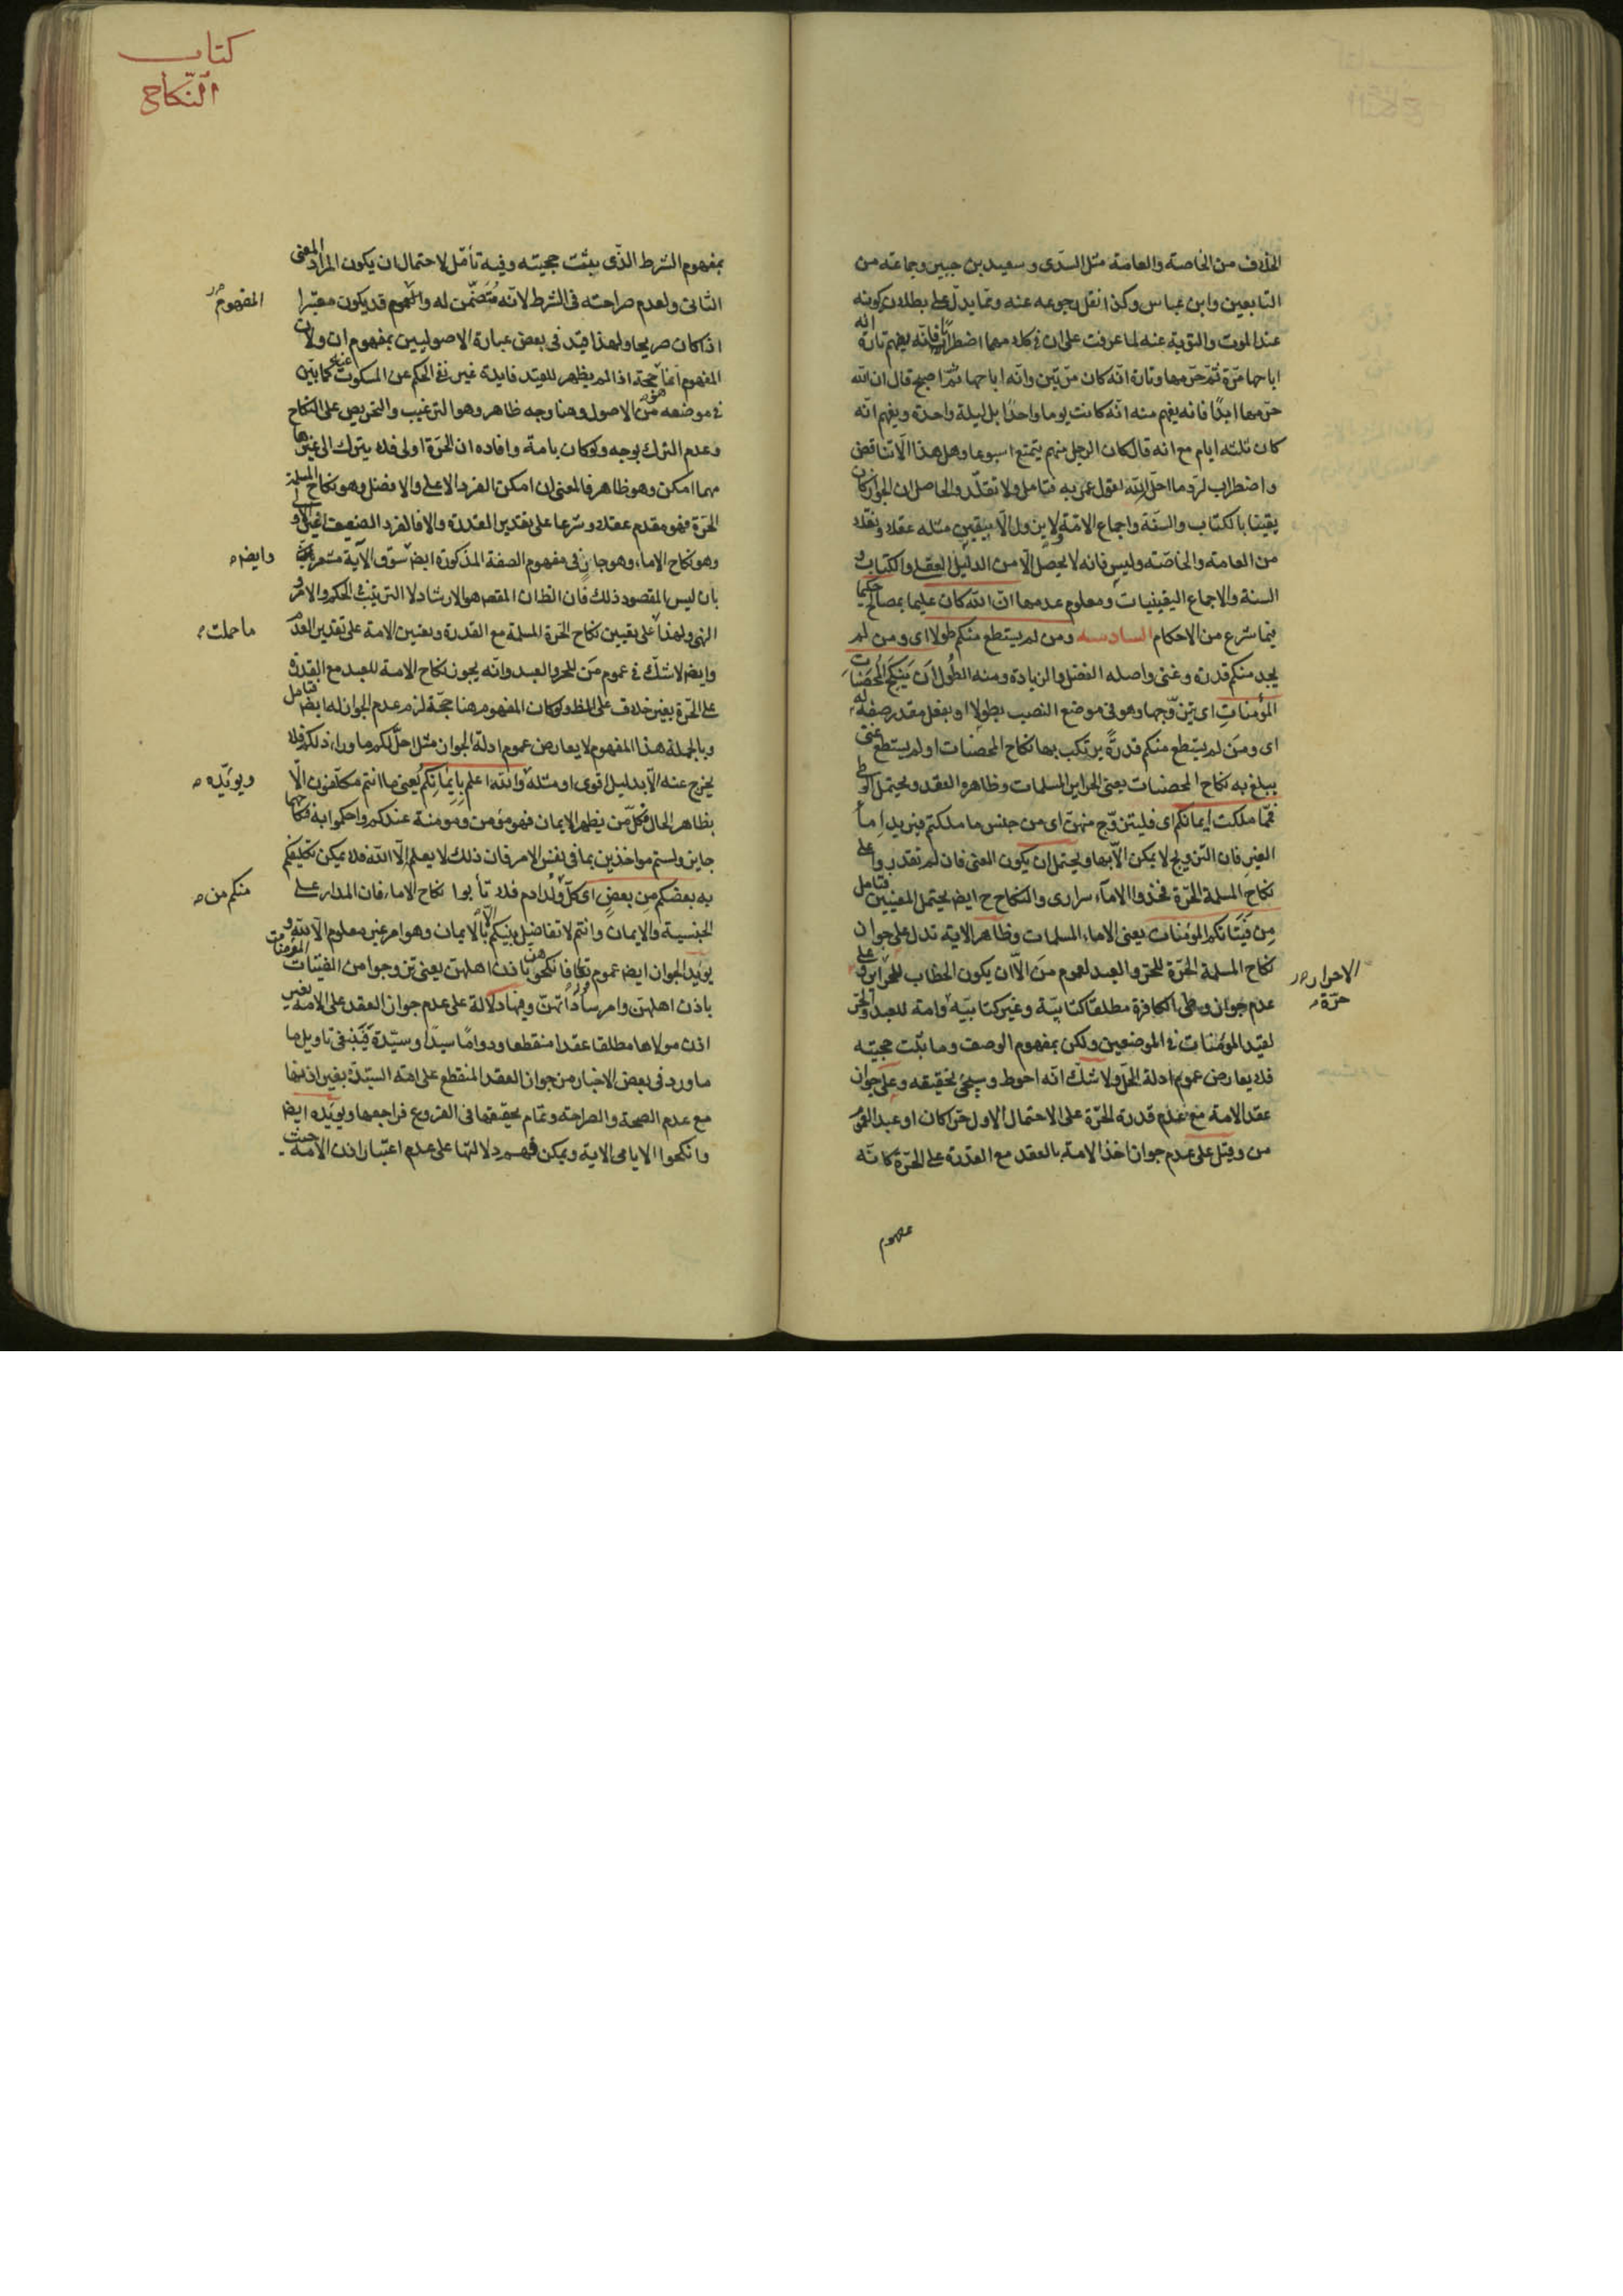 الخلاف من الخاصة والعامة مثل السدى وسعيد بن جبير وجماعة من
التابعين وابن عباس وكذا نقل رجوعه عنه ومما يدل على بطلان كونه
عند الموت والتوبة عنه لما عرفت على ان فى كلامهما اضطرابا فانه يفهم تارة انه
اباحها مرة ثم حرمها وتارة انه كان مرتين وانه اباحها ثم اصبح قال ان الله
حرمها ابدًا فانه يفهم منه انه كانت يوما واحدًا بل ليلة واحدة ويفهم انه
كان ثلثه ايام مع انه قال كان الرجل منهم يتمتع اسبوعا وهل هذا الا تناقض
واضطراب لرد ما احل الله لقول عمر به فتامل ولا تقلد والحاصل ان الجواز كان
يقينا بالكتاب والسنة واجماع الامة ولا يزول الا بيقين مثله عقلا ونقلا
من العامة والخاصة وليس فانه لا يحصل الا من الدليل العقلى والكتاب و
السنة والاجماع اليقينيات ومعلوم عدمها ان الله كان عليما بمصالح حكيما
فيما شرع من الاحكام السادسه ومن لم يستطع منكم طولا اى ومن لم
يجد منكم قدرة وغنى واصله الفضل والزيادة ومنه الطول اَن يَنكِحَ المُحصَنات
المؤمنات اى يتزوجها وهو فى موضع النصب بطولا او بفعل مقدر صفة له
اى ومن لم يستطع منكم قدرةً يرتكب بها نكاح المحصنات او لم يستطع غنى
يبلغ به نكاح المحصنات يعنى الحراير المسلمات وظاهره العقد ويحتمل الوطى
فمما ملكت ايمانكم اى فليتزوج منهن اى من جنس ما ملكتم فيريد اماء
الغير فان التزويج لا يمكن الا بها ويحتمل ان يكون المعنى فان لم تقدروا على
نكاح المسلمة الحرة فخذوا الاماء سرارى والنكاح ح ايض يحتمل المعنيين فتامل
مِن فَتَيَاتكم المؤمنات يعنى الاماء المسلمات وظاهر الاية تدل على جواز
نكاح المسلمة الحرة للحر والعبد لعموم مَن الّا ان يكون الخطاب للحراير وعلى
الاحرار
عدم جواز وطى الكافرة مطلقا كتابية وغير كتابية وامة للعبد والحر
حرة
لقيد المؤمنات فى الموضعين ولكن بمفهوم الوصف وما ثبت حجيته
فلا يعارض عموم ادلة الحل ولا شك انه احوط وسيجئ تحقيقه وعلى جواز
عقد الامة مع عدم قدرة الحرة على الاحتمال الاول حرا كان او عبدا لعموم
من وقيل على عدم جواز اخذ الامة بالعقد مع القدرة على الحرة كانه
مفهوم
كتاب
النكاح
بمفهوم الشرط الذى يثبت حجيته وفيه تأمل لاحتمال ان يكون المراد المعنى
الثانى ولعدم صراحته فى الشرط لانه مُتَضَمّن له والمفهوم قد يكون معتبرا
المفهوم
اذا كان صريحا ولهذا قيد فى بعض عبارة الاصوليين بمفهوم ان ولان
المفهوم انما حجة اذا لم يظهر للقيد فايدة غير نفى الحكم عن المسكوت عنه كما بين
فى موضعه من الاصول وهنا وجه ظاهر وهو الترغيب والتحريص على النكاح
وعدم الترك بوجه ولو كان بامة وافاده ان الحرة اولى فلا يترك الى غيرها
مهما امكن وهو ظاهر فالمعنى ان امكن الفرد الاعلى والافضل وهو نكاح المسلمة
الحرة فهو مقدم عقلا وشرعا على تقدير القدرة والا فالفرد الضعيف الادنى
وهو نكاح الاماء وهو جارٍ فى مفهوم الصفة المذكورة ايض سوق الآية مشعرة
وايض
بان ليس المقصود ذلك فان الظ ان المقصد هو الارشاد لا الترتيب فى الحكم والامر و
النهى ولهذا على تعيين نكاح الحرة المسلمة مع القدرة وتعيين الامة على تقدير العدم
ما حملت
وايض لا شك فى عموم مَن للحر والعبد وانه يجوز نكاح الامة للعبد مع القدرة
على الحرة بغير خلاف على الظ ولو كان المفهوم هنا حجة لزم عدم الجواز له ايض فتامل
وبالجملة هذا المفهوم لا يعارض عموم ادلة الجواز مثل احل لكم ما وراء ذلكم فلا
يخرج عنه الا بدليل اقوى او مثله وَالله اعلم بايمانكم يعنى ما انتم مكلفون الا
ويؤيده
بظاهر الحال فكل من يظهر الايمان فهو مؤمن ومومنة عندكم واحكموا به فنكاحها
جايز ولستم مواخذين بما فى نفس الامر فان ذلك لا يعلم الا الله فلا يمكن تكليفكم
به بعضكم مِن بعض اى كل ولد ادم فلا تأبوا نكاح الاماء فان المدار على
منكم من
الجنسية والايمان وانتم لا تفاضل بينكم الا بالايمان وهو امر غير معلوم الا لله و
يؤيد الجواز ايض عموم تعالى فانكحوهن باذن اهلهن يعنى تزوجوا من الفتيات المؤمنات
باذن اهلهن وامر ساداتهن وفيها دلالة على عدم جواز العقد على الامة بغير
اذن مولاها مطلقا عقدا منقطعا ودواما سيدا وسيدة فينبغى تاويل ما
ما ورد فى بعض الاخبار من جواز العقد المنقطع على امة السيدة بغير اذنها
مع عدم الصحة والصراحة وتمام تحقيقها فى الفروع فراجعها ويؤيده ايض
وانكحوا الايامى الاية ويمكن فهم دلالتها على عدم اعتبار اذن الامة حيث